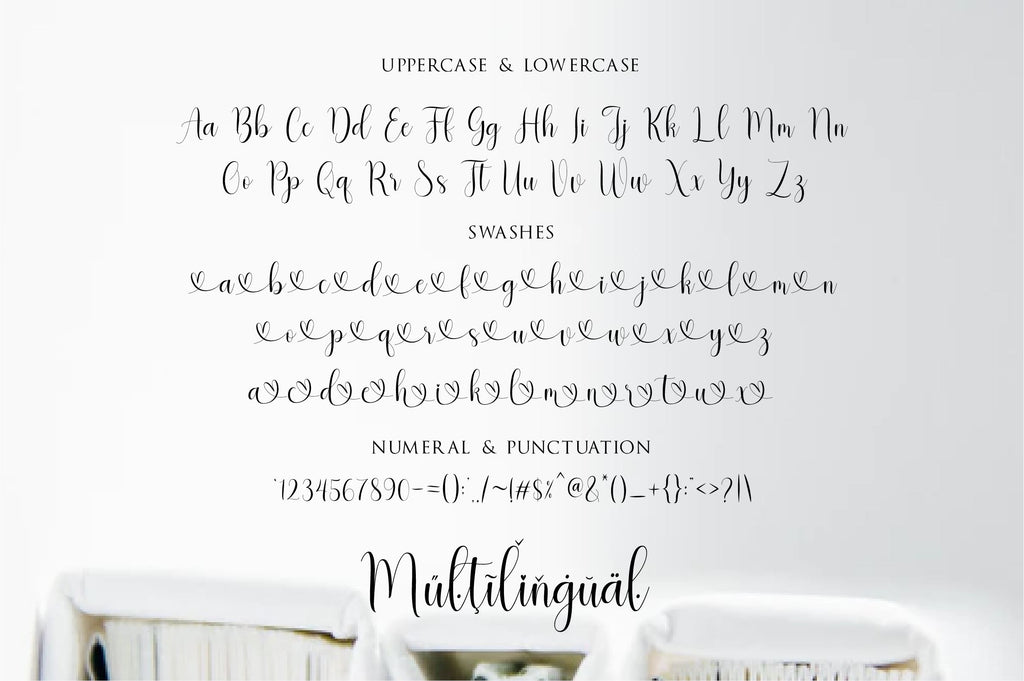 UPPERCASE & LOWERCASE
Aa Bb Cc Dd Ee Ff Gg Hh Ii Jj Kk Ll Mm Nn
Oo Pp Qq Rr Ss Tt Uu Vv Ww Xx Yy Zz
SWASHES
a b c d e f g h i j k l m n
o p q r s u v w x y z
a c d e h i k l m n r t u x
NUMERAL & PUNCTUATION
`1234567890-=();',./~!#$%^@&*()_+{}:"<>?|\
Műļţĩľiňġŭäŀ